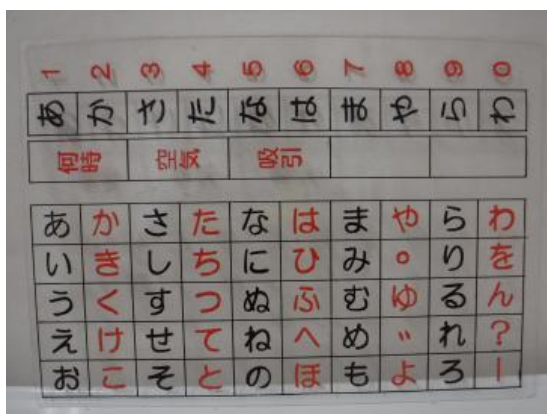 1 2 3 4 5 6 7 8 9 0
あ か さ た な は ま や ら わ
何時 空気 吸引
あ か さ た な は ま や ら わ
い き し ち に ひ み ° り を
う く す つ ぬ ふ む ゆ る ん
え け せ て ね へ め 〃 れ ?
お こ そ と の ほ も よ ろ ー